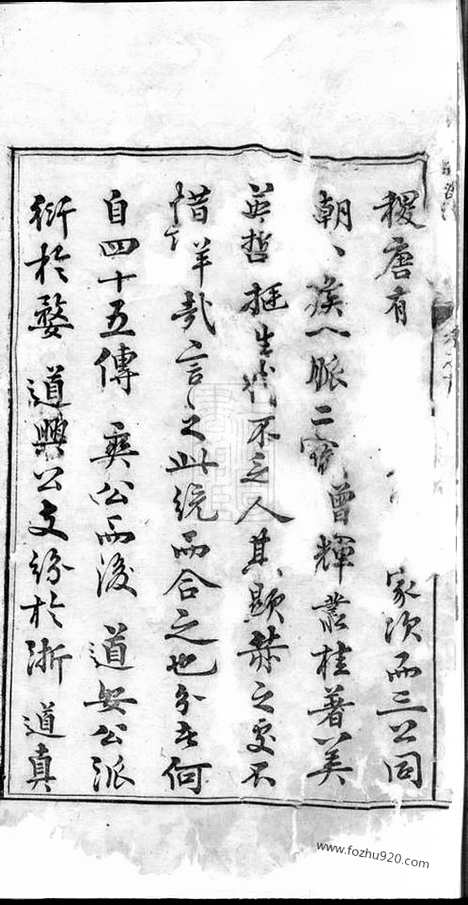 稷唐有 家次而三公同
朝、溪八脈二竇曾輝叢桂著美
英哲挺生代不乏人其顯恭之更不
惜详哉言之此統而合之也分者何
自四十五傳 奭公而後 道安公派
衍於婺 道興公支紛於浙 道真
www.fozhu920.com